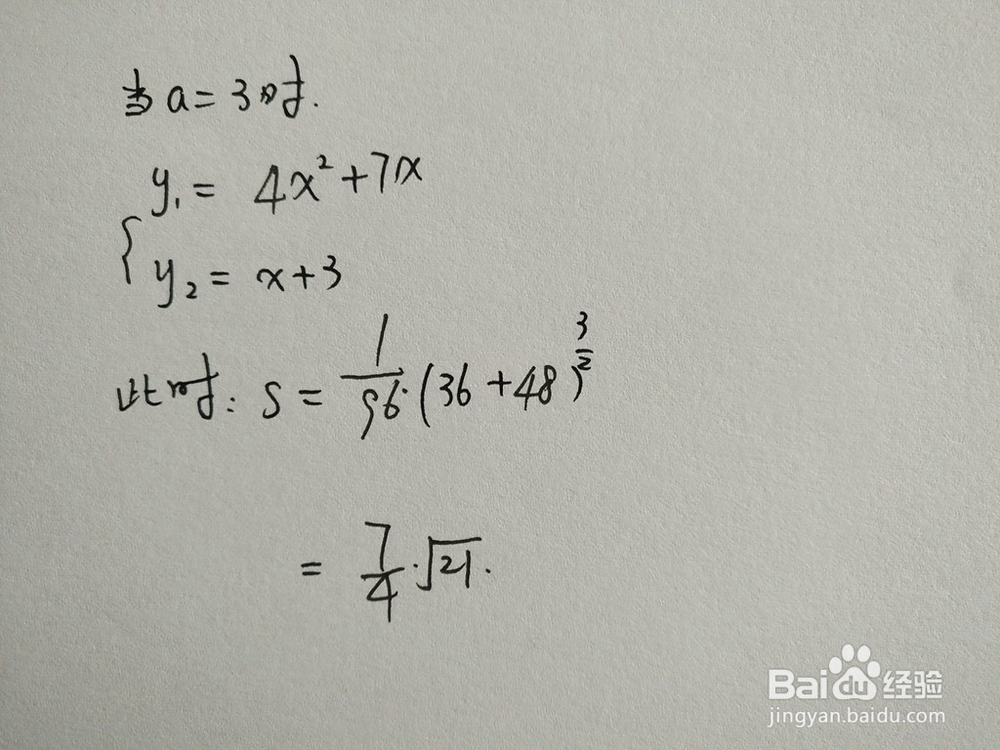 当a=3时.
y₁ = 4x²+7x
{
y₂ = x+3
此时: S = 1/96·(36+48)^(3/2)
= 7/4·√21.
Baidu经验
jingyan.baidu.com